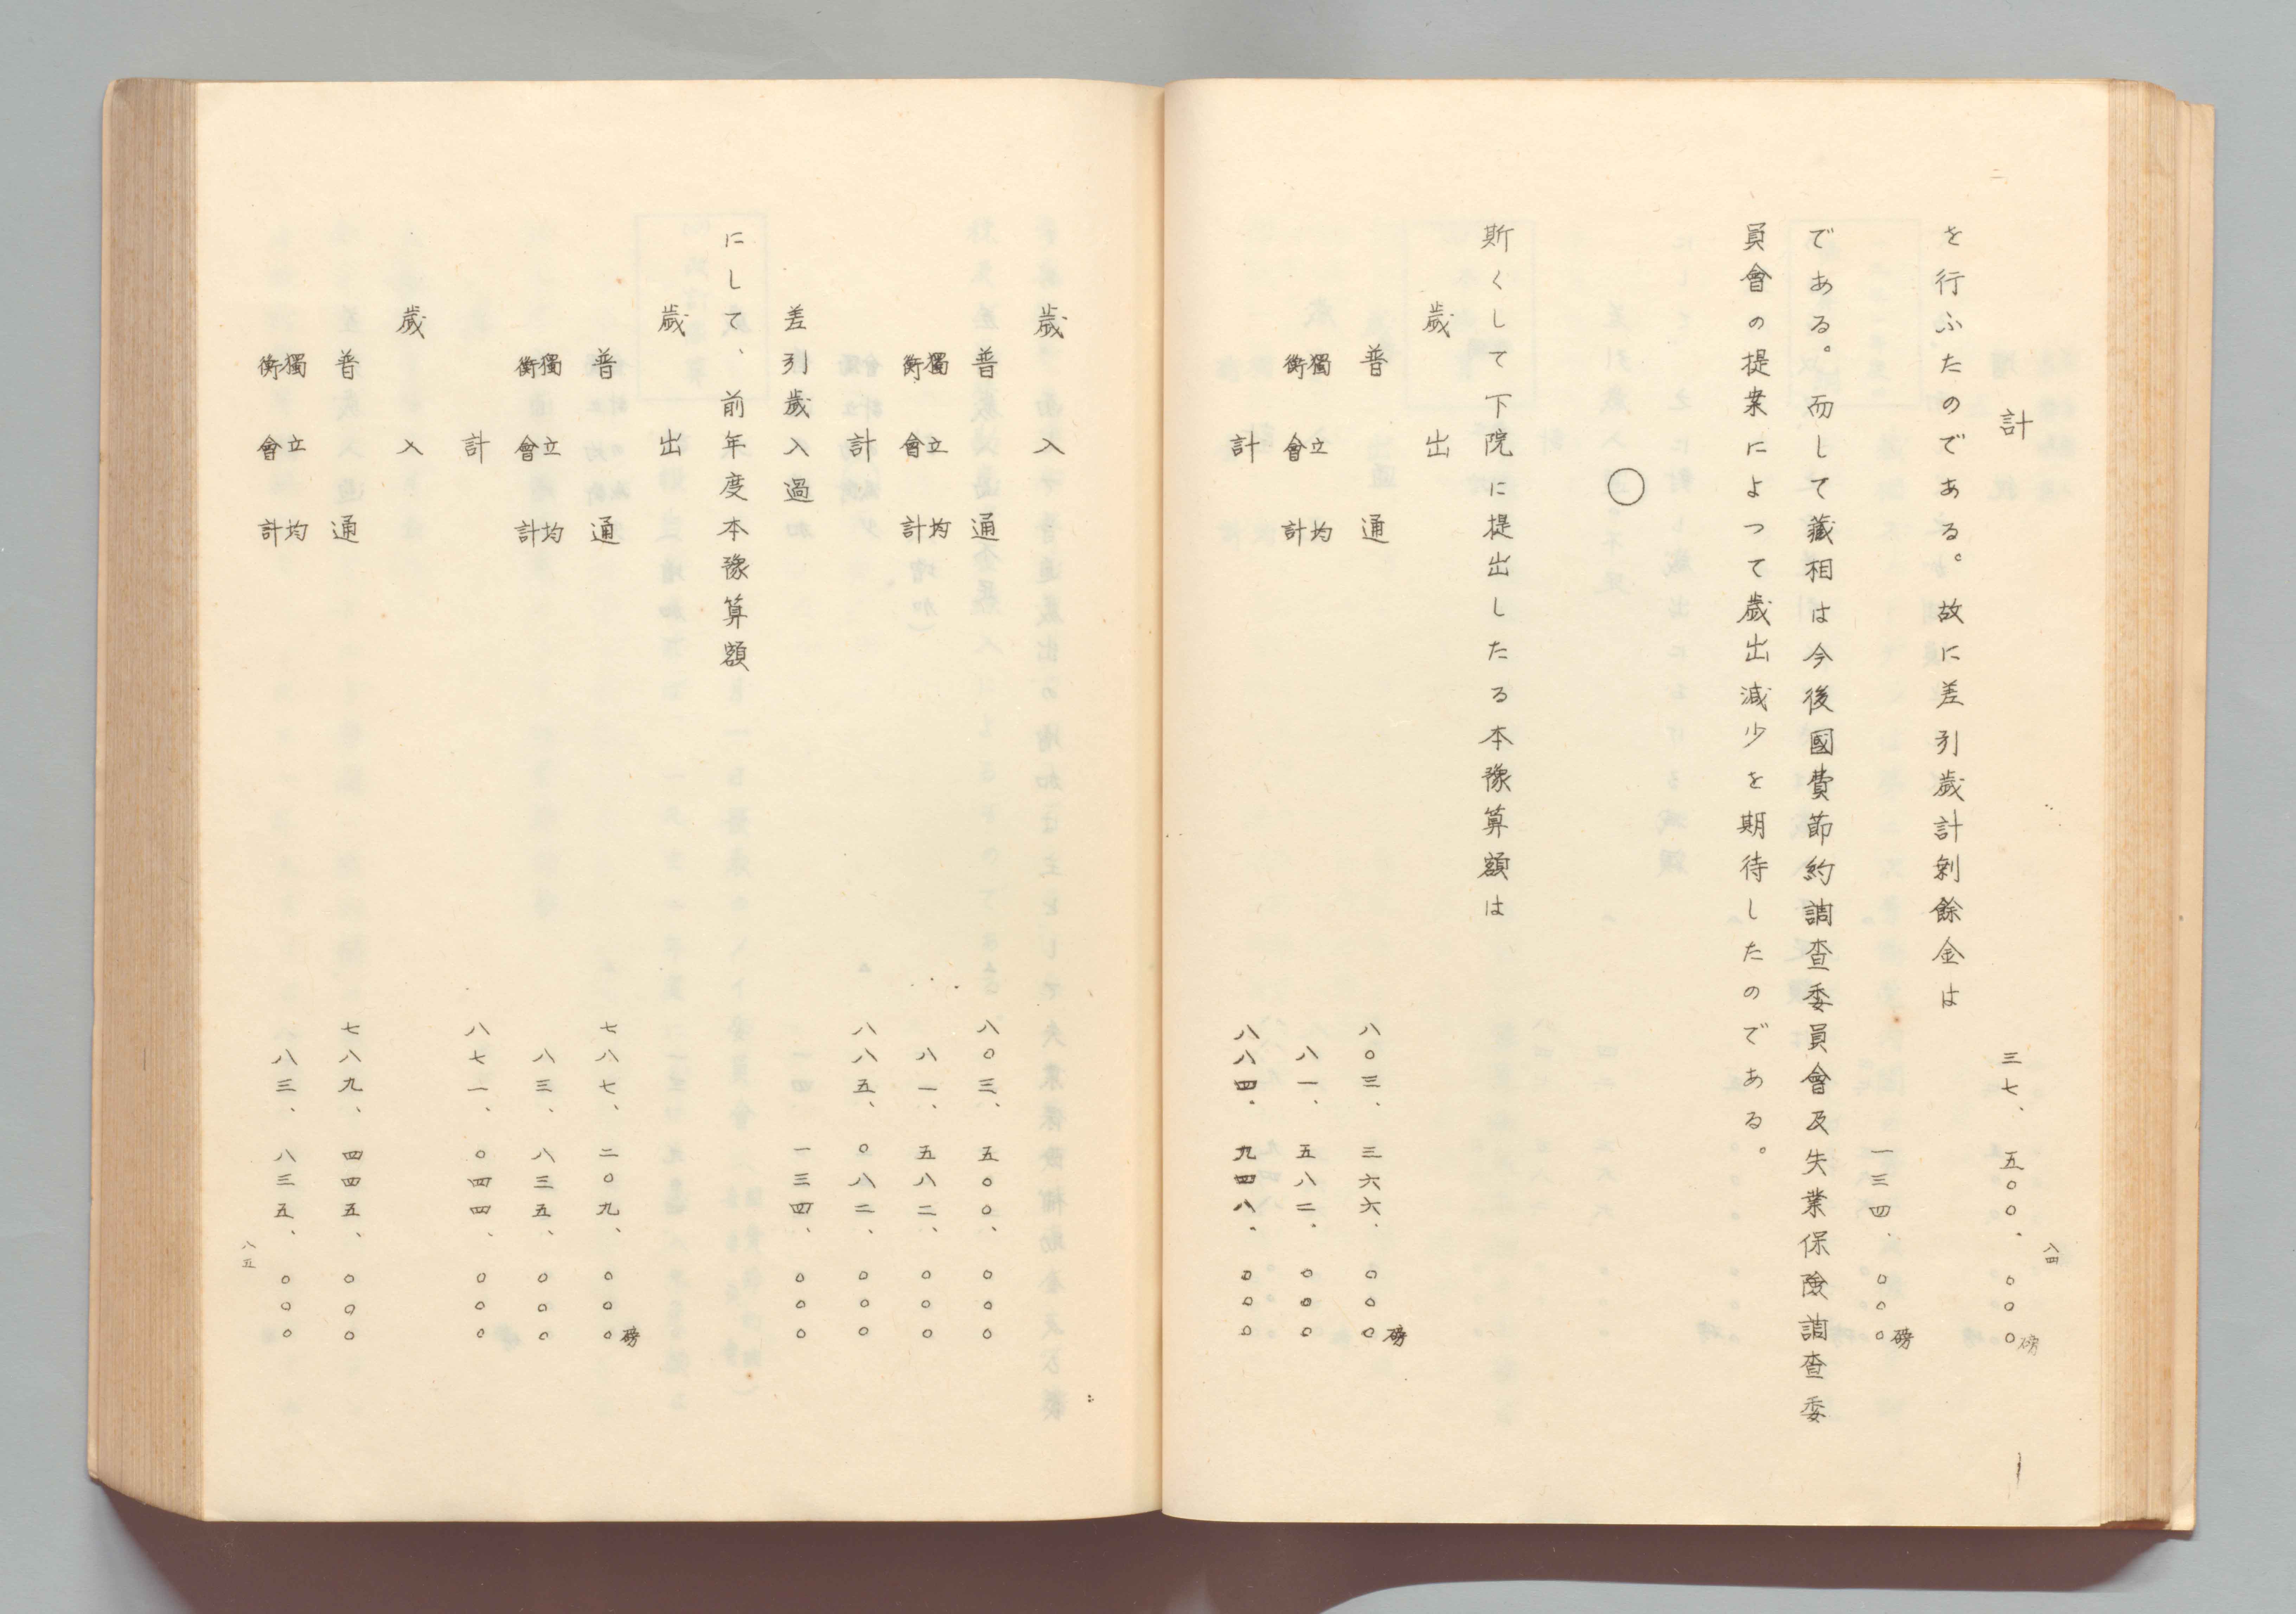 計　三七、五〇〇、〇〇〇磅
を行ふたのである。故に差引歲計剩餘金は
一三四、〇〇〇磅
である。而して藏相は今後國費節約調查委員會及失業保險調查委
員會の提案によつて歲出減少を期待したのである。
〇
斯くして下院に提出したる本豫算額は
歲出
普通　八〇三、三六六、〇〇〇磅
獨立均衡會計　八一、五八二、〇〇〇
計　八八四、九四八、〇〇〇
八四
歲入
普通　八〇三、五〇〇、〇〇〇
獨立均衡會計　八一、五八二、〇〇〇
計　八八五、〇八二、〇〇〇
差引歲入過　一三四、〇〇〇
にして、前年度本豫算額
歲出
普通　七八七、二〇九、〇〇〇磅
獨立均衡會計　八三、八三五、〇〇〇
計　八七一、〇四四、〇〇〇
歲入
普通　七八九、四四五、〇〇〇
獨立均衡會計　八三、八三五、〇〇〇
八五